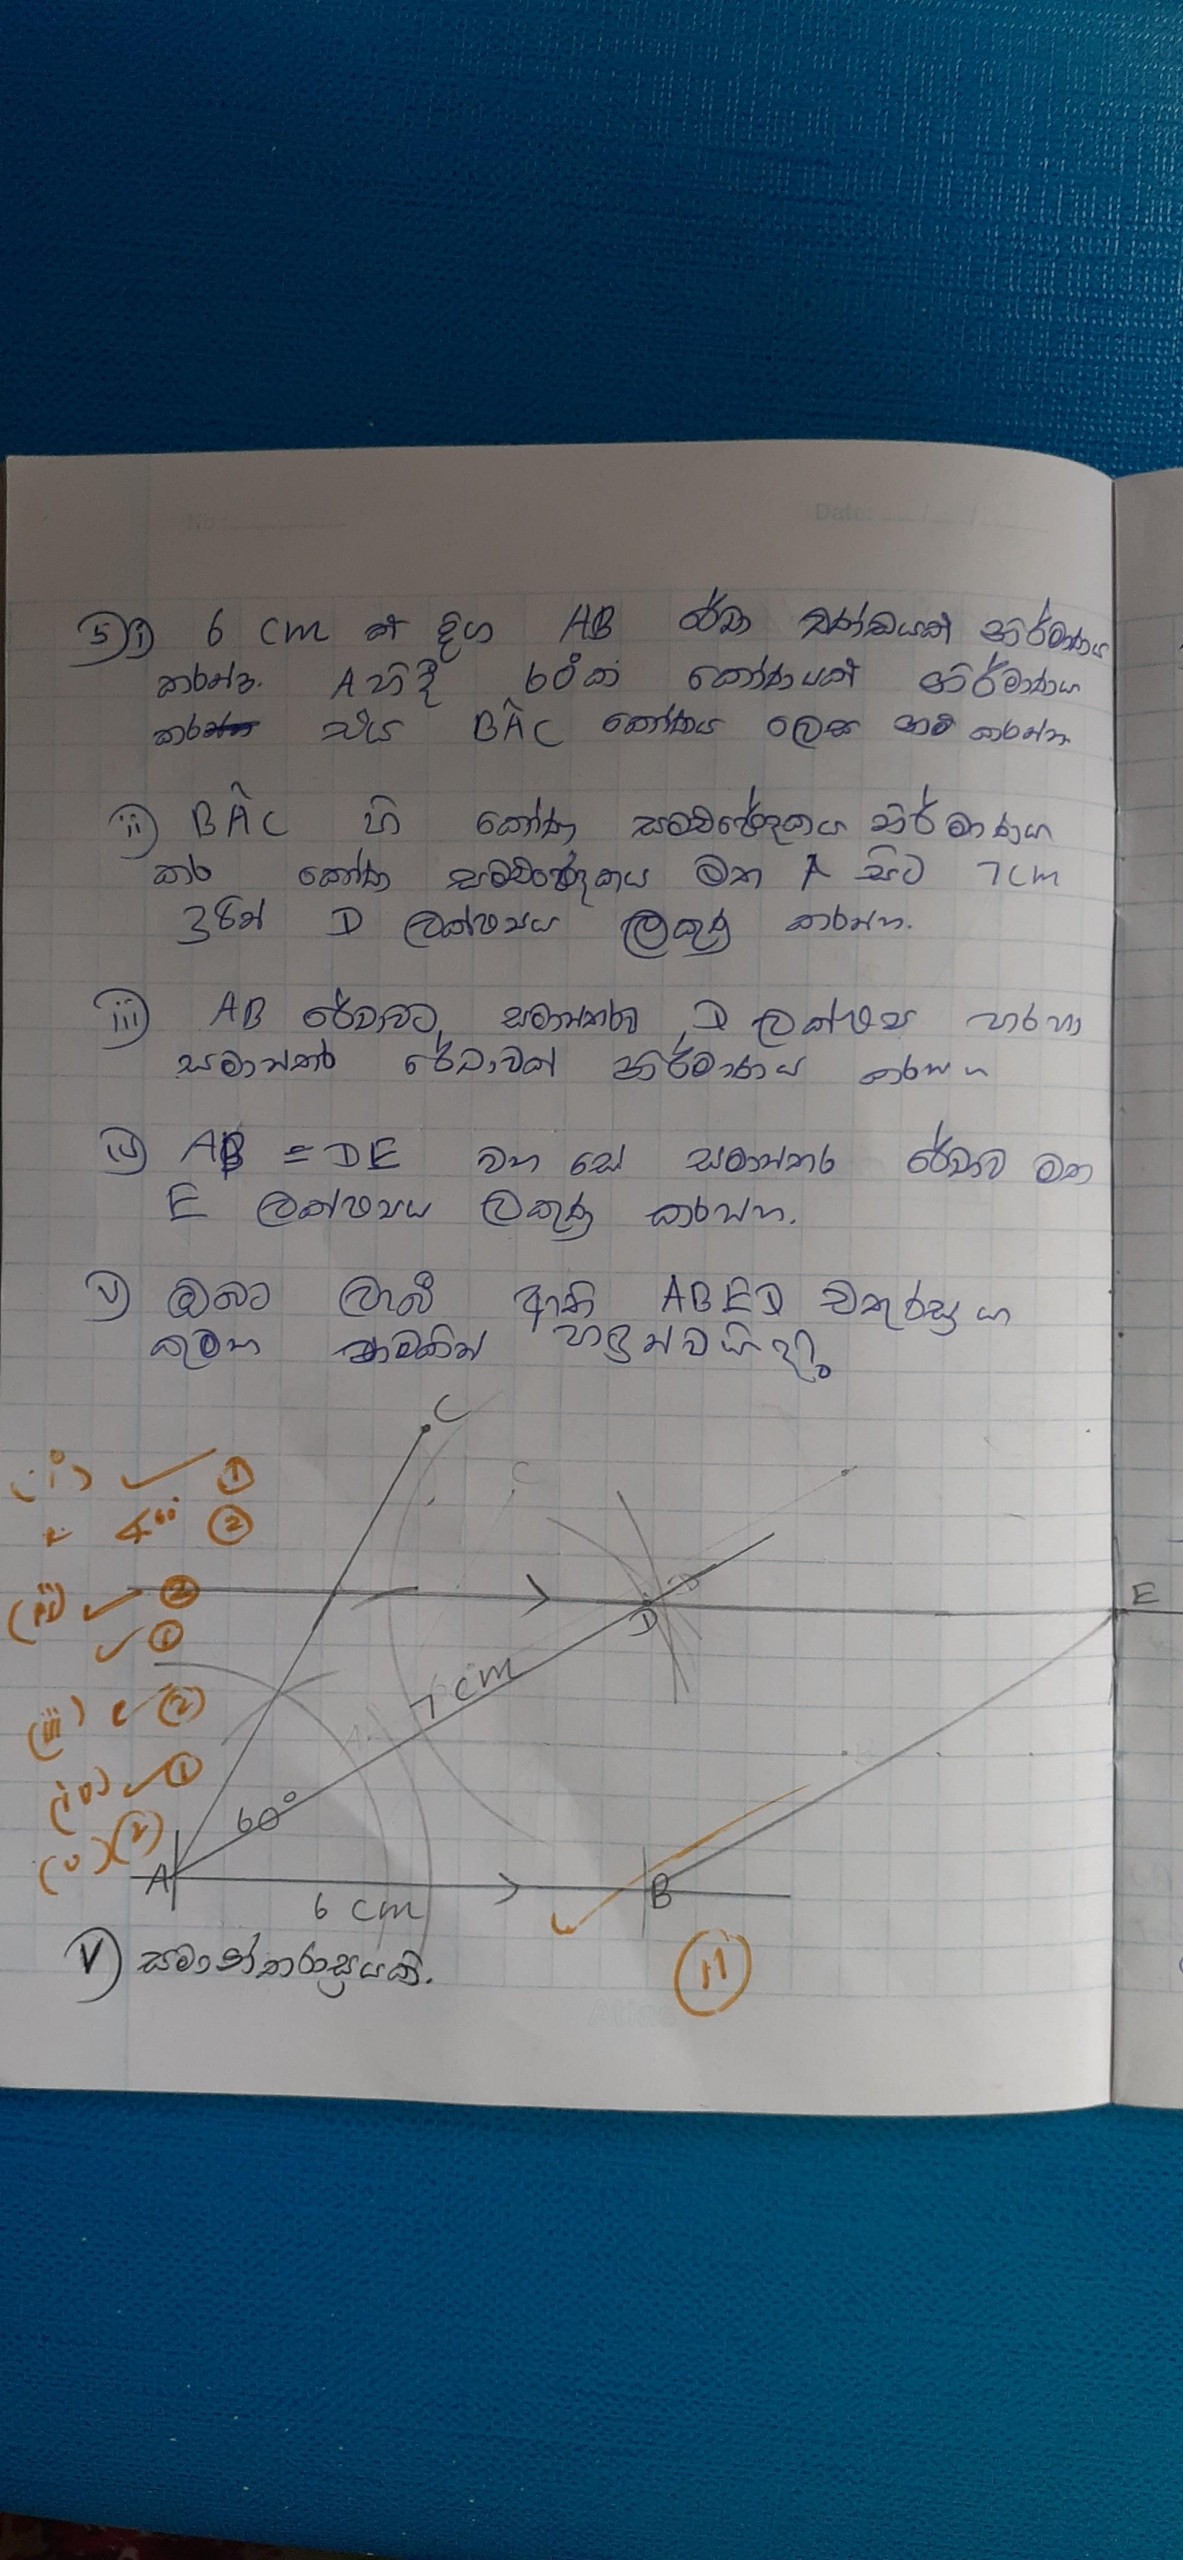 No:
Date: / /
5) i) 6 cm ක් දිග AB රේඛා ඛණ්ඩයක් නිර්මාණය
කරන්න. A හිදී 60° ක කෝණයක් නිර්මාණය
කර එය BÂC කෝණය ලෙස නම් කරන්න
ii) BÂC හි කෝණ සමච්ඡේදකය නිර්මාණය
කර කෝණ සමච්ඡේදකය මත A සිට 7cm
දුරින් D ලක්ෂ්‍යය ලකුණු කරන්න.
iii) AB රේඛාවට සමාන්තරව D ලක්ෂ්‍ය හරහා
සමාන්තර රේඛාවක් නිර්මාණය කරන්න
iv) AB = DE වන සේ සමාන්තර රේඛාව මත
E ලක්ෂ්‍යය ලකුණු කරන්න.
v) ඔබට ලැබී ඇති ABED චතුරස්‍රය
කුමන නාමකින් හඳුන්වයිද?
C
C
(i) ✓ 1
60° 2
(ii) ✓ 2
✓ 1
D
D
E
7 cm
(iii) ✓ 2
(iv) ✓ 1
(v) 2
60°
A
6 cm
B
V) සමාන්තරාස්‍රයකි.
11